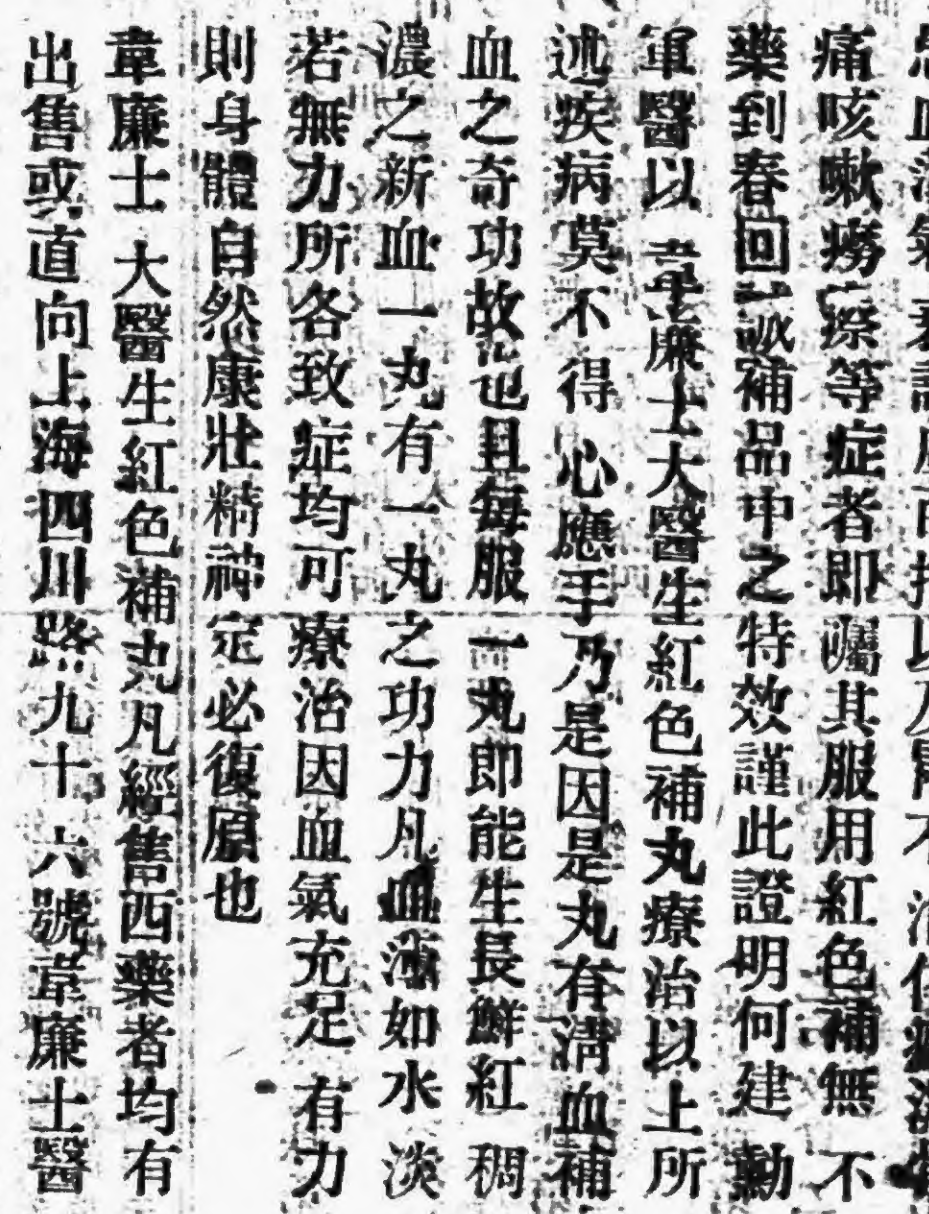 以及腎不
痛咳嗽癆瘵等症者即囑其服用紅色補無不
藥到春回誠補品中之特效謹此證明何建勳
軍醫以韋廉士大醫生紅色補丸療治以上所
述疾病莫不得心應手乃是因是丸有清血補
血之奇功故也且每服一丸即能生長鮮紅稠
濃之新血一丸有一丸之功力凡血薄如水淡
若無力所各致症均可療治因血氣充足有力
則身體自然康壯精神定必復原也
韋廉士大醫生紅色補丸凡經售西藥者均有
出售或直向上海四川路九十六號韋廉士醫